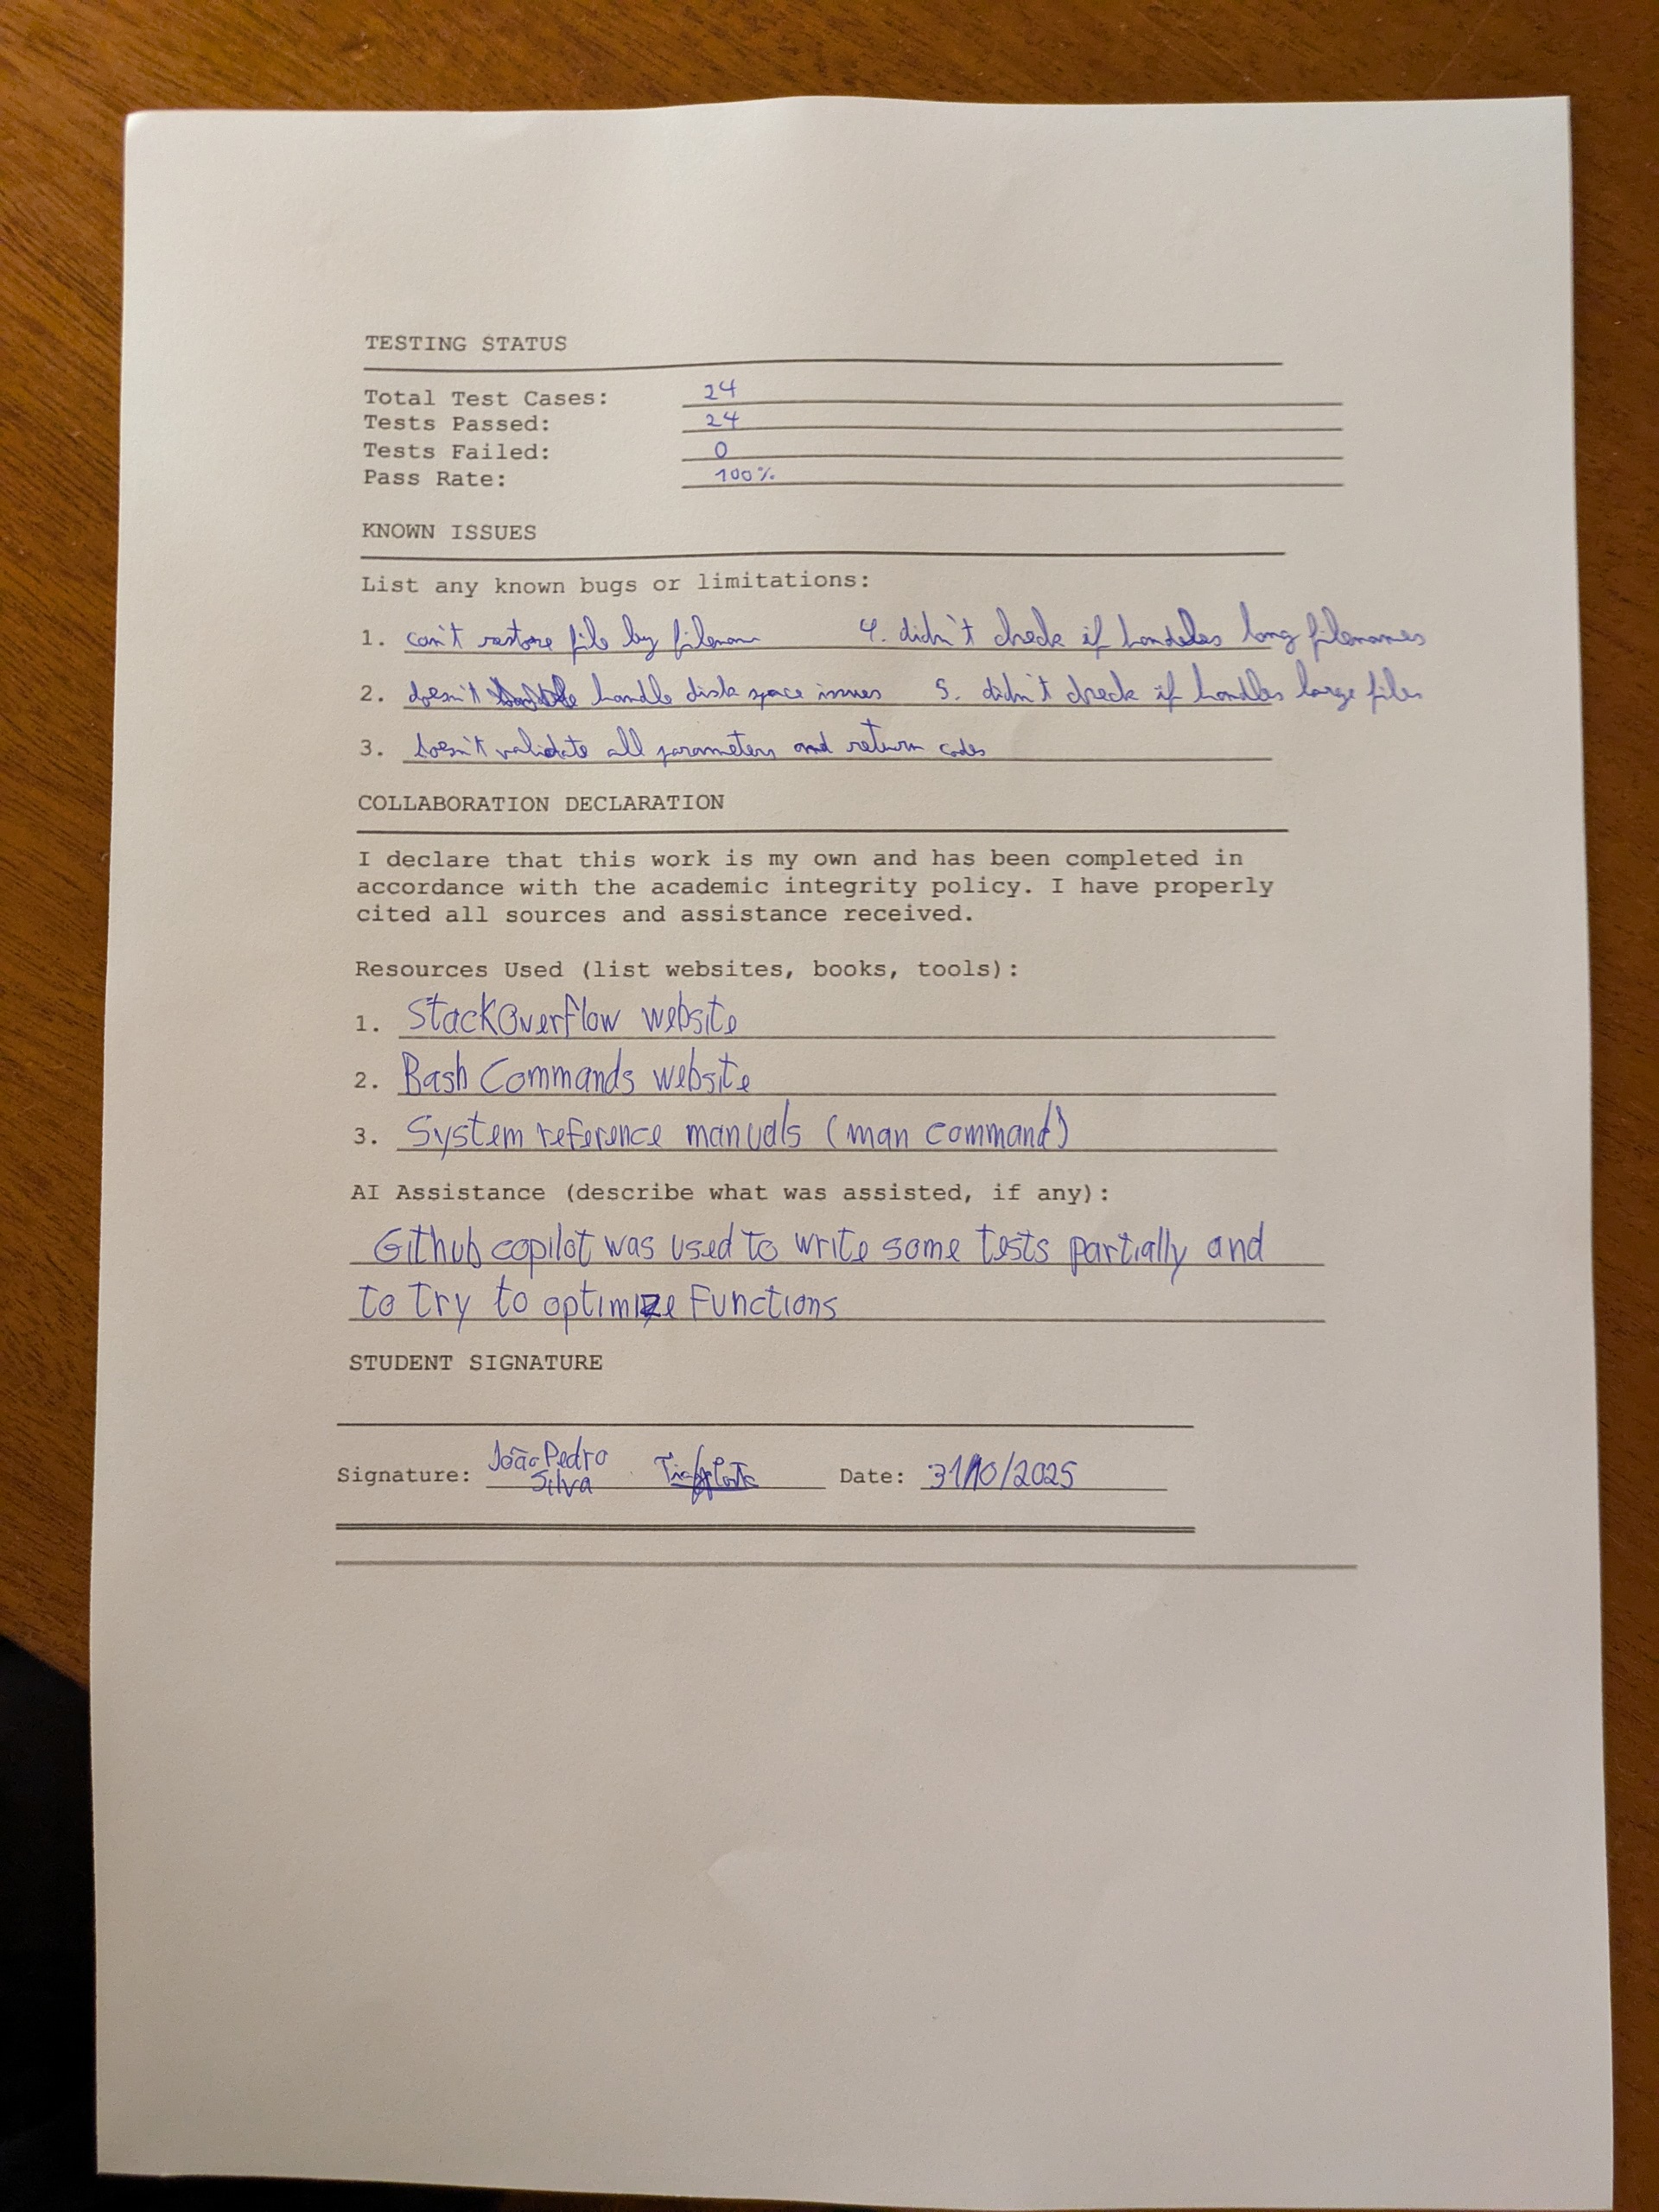 TESTING STATUS
Total Test Cases: 24
Tests Passed: 24
Tests Failed: 0
Pass Rate: 100%
KNOWN ISSUES
List any known bugs or limitations:
1. can't restore file by filename 4. didn't check if handeles long filenames
2. doesn't handle disk space issues 5. didn't check if handles large files
3. doesn't validate all parameters and return codes
COLLABORATION DECLARATION
I declare that this work is my own and has been completed in
accordance with the academic integrity policy. I have properly
cited all sources and assistance received.
Resources Used (list websites, books, tools):
1. StackOverflow website
2. Bash Commands website
3. System reference manuals (man command)
AI Assistance (describe what was assisted, if any):
Github copilot was used to write some tests partially and
to try to optimize Functions
STUDENT SIGNATURE
Signature: João Pedro Silva Date: 31/10/2025